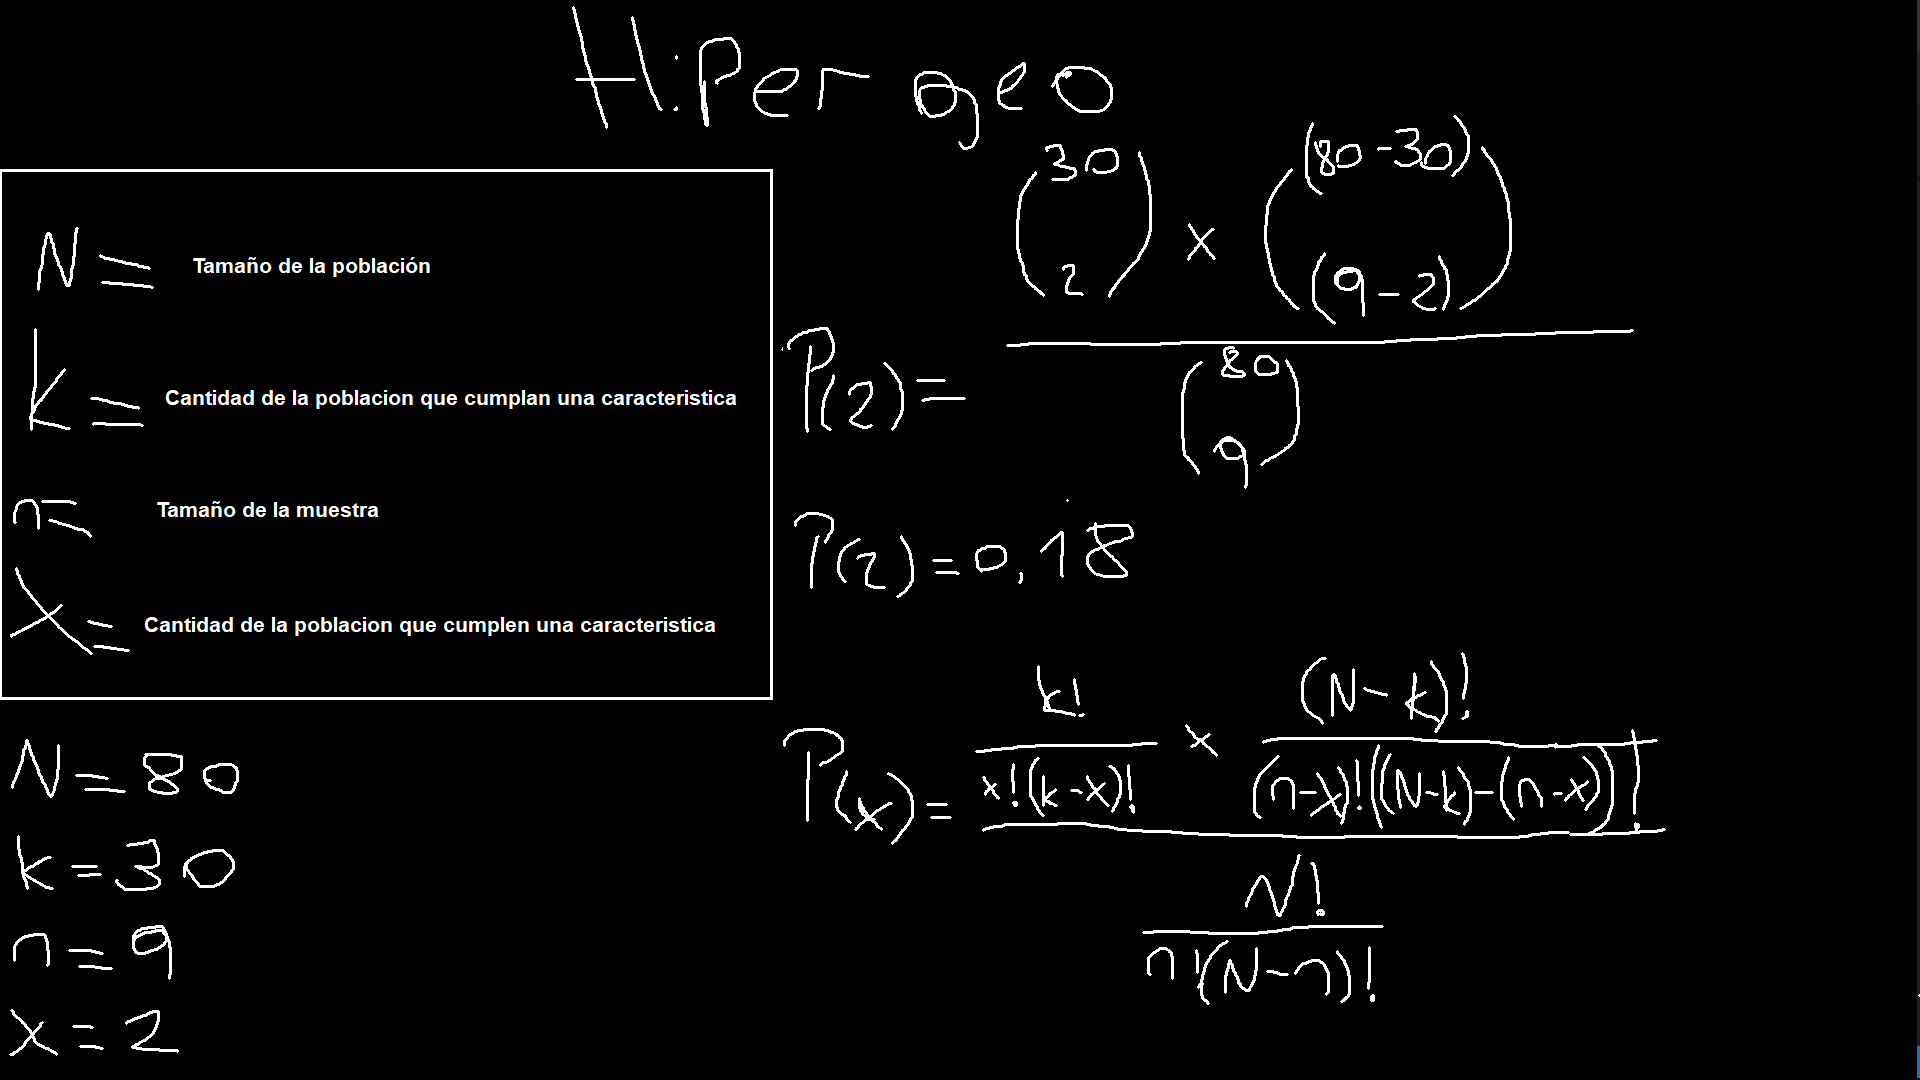 Hiper geo
N= Tamaño de la población
k= Cantidad de la poblacion que cumplan una caracteristica
n= Tamaño de la muestra
X= Cantidad de la poblacion que cumplen una caracteristica
N=80
k=30
n=9
x=2
(30 2) x ((80-30) (9-2))
P(2)=
(80 9)
P(2)=0,18
k! x (N-k)!
P(x)= x!(k-x)! (n-x)!((N-k)-(n-x))!
N!
n!(N-n)!